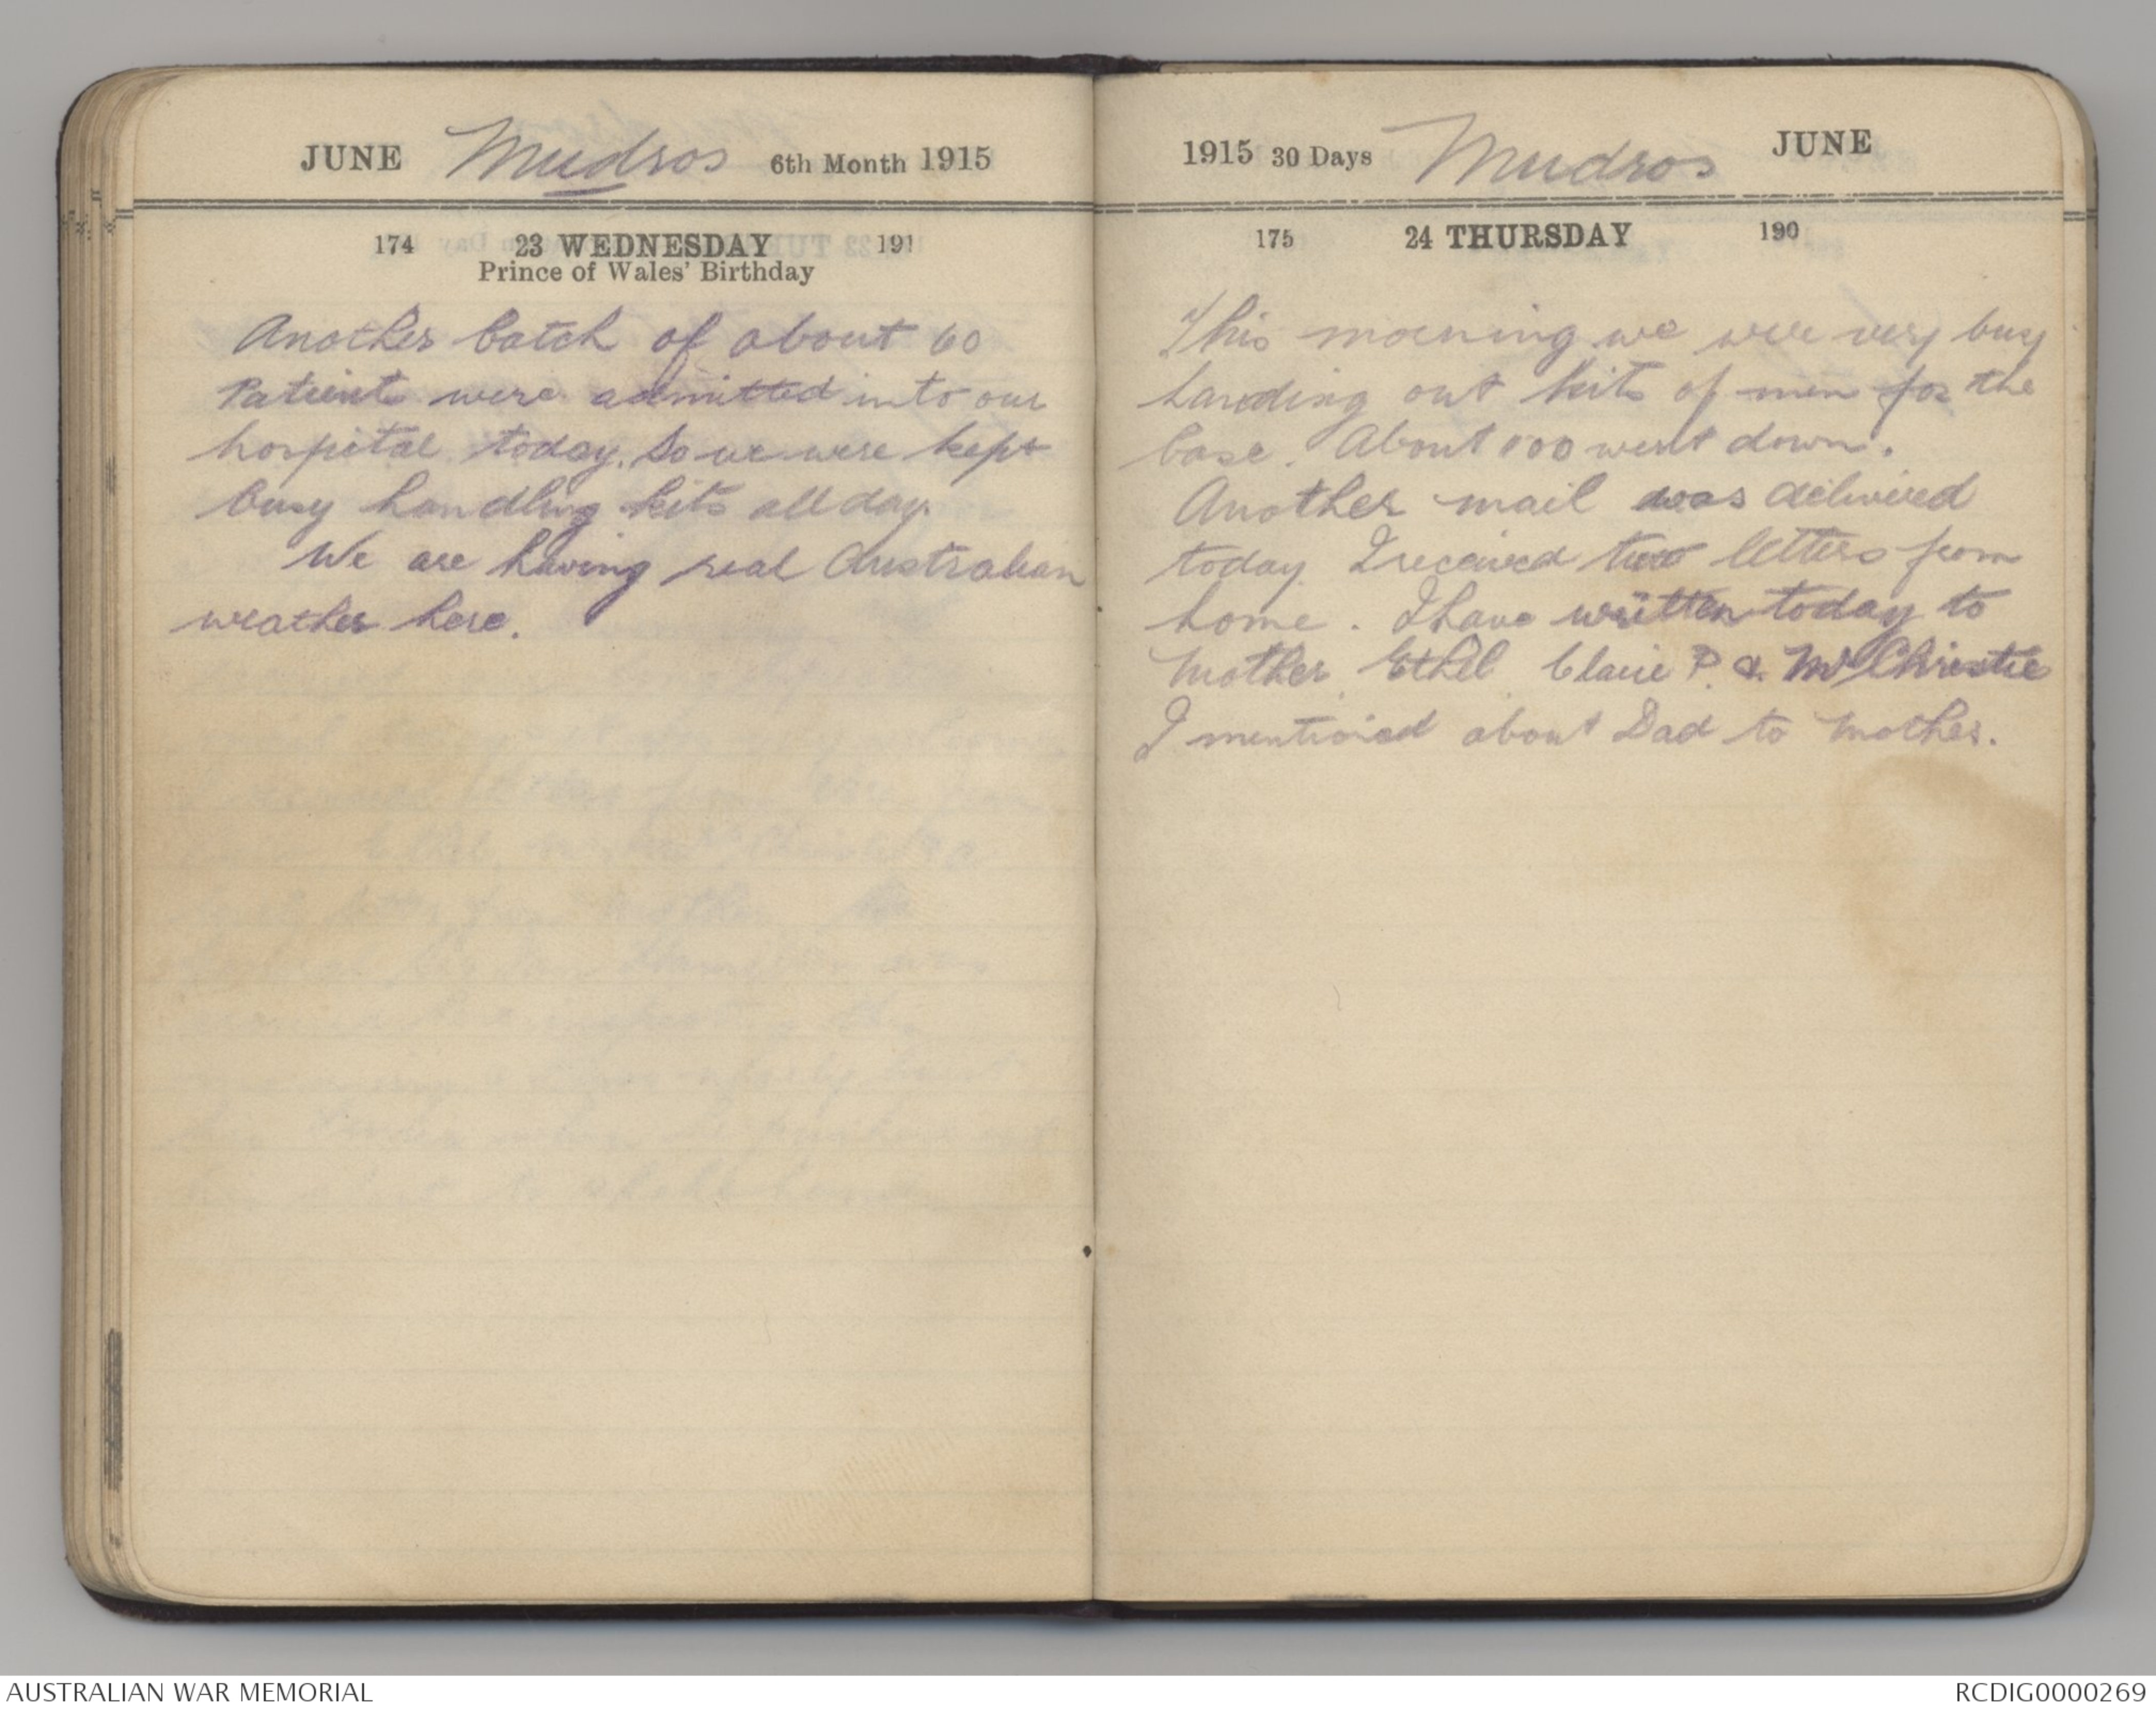 JUNE Mudros 6th Month 1915
174 23 WEDNESDAY 191
Prince of Wales' Birthday
Another batch of about 60
Patients were admitted into our
hospital today. So we were kept
busy handling kits all day.
We are having real Australian
weather here.
1915 30 Days Mudros JUNE
175 24 THURSDAY 190
This morning we were very busy
handing out kits of men for the
base. About 100 went down.
Another mail was delivered
today. I received two letters from
home. I have written today to
Mother, Ethel Claire P. & Mr Christie
I mentioned about Dad to Mother.
AUSTRALIAN WAR MEMORIAL
RCDIG0000269